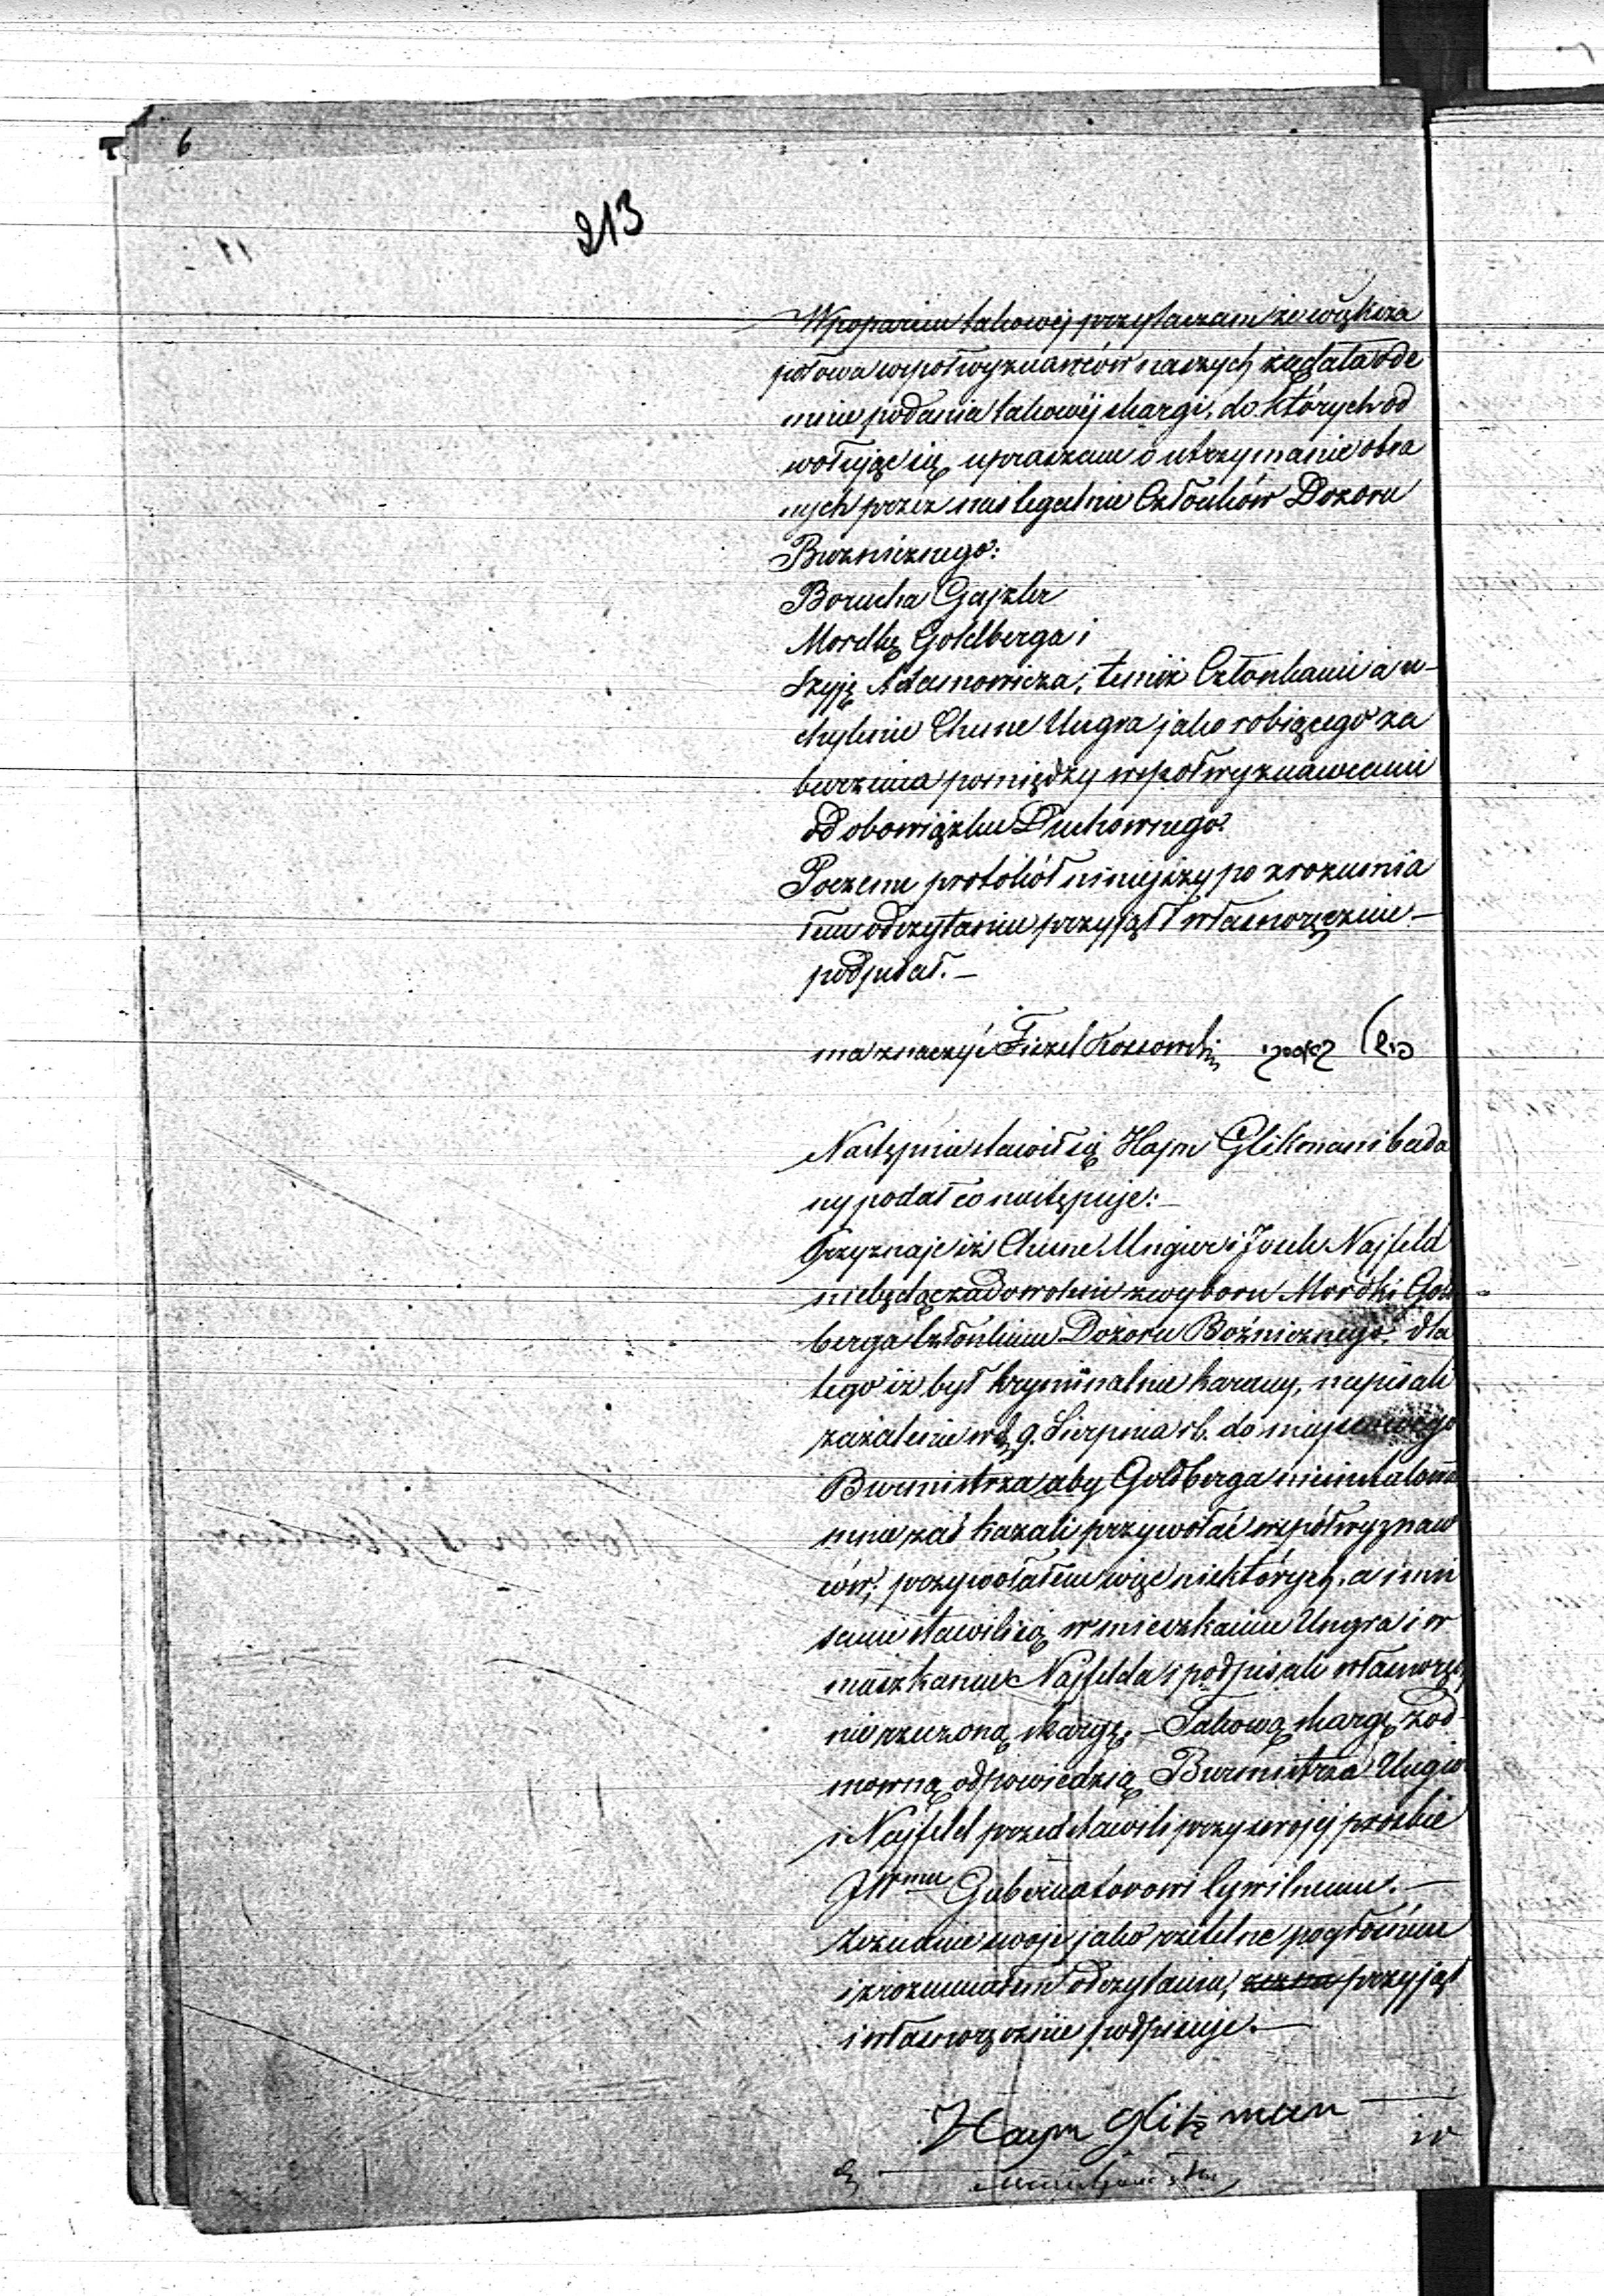 6
213
W poparciu takowej przytaczam że większa
połowa wspołwyznawców naszych żądała ode
mnie podania takowéj skargi, do których od
wołując się upraszam o utrzymanie obra
nych przez nas legalnie Członków Dozoru
Bużnicznego:
Borucha Gajzler
Mordkę Goldberga i
Szyję Adamowicza, temiż Członkami a u-
chylenie Chune Ungra jako robiącego za
burzenia pomiędzy wspołwyznawcami
od obowiązku Duchownego.
Poczem protokół niniejszy po zrozumia
łem odczytaniu przyjął i własnoręcznie –
podpisał. –
ma znaczyć Fiszel Kossowski
Następnie stawił się Hajm Glikman i bada
ny podał co następuje: –
Przyznaje iż Chune Ungier i Josek Najfeld
niebędąc zadowoleni z wyboru Mordki Gol
berga Członkiem Dozoru Bożnicznego, dla
tego iż był kryminalnie karany, napisali
zażalenie w d. 9. Sierpnia rb. do miejscowego
Burmistrza aby Goldberga nieinstalował
mnie zaś kazali przywołać współwyznaw
ców, przywołałem więc niektórych, a inni
sami stawili się w mieszkaniu Ungra i w
mieszkaniu Najfelda i podpisali własnoręcz
nie rzeczoną skargę. – Takową skargę z od
mowną odpowiedzią Burmistrza Ungier
i Najfeld przedstawili przy swojej prośbie
JWmu Gubernatorowi Cywilnemu. –
Zeznanie swoje jako rzetelne po głośném
i zrozumiałem odczytaniu, przyjął
i własnoręcznie podpisuje. –
Haym Glikman